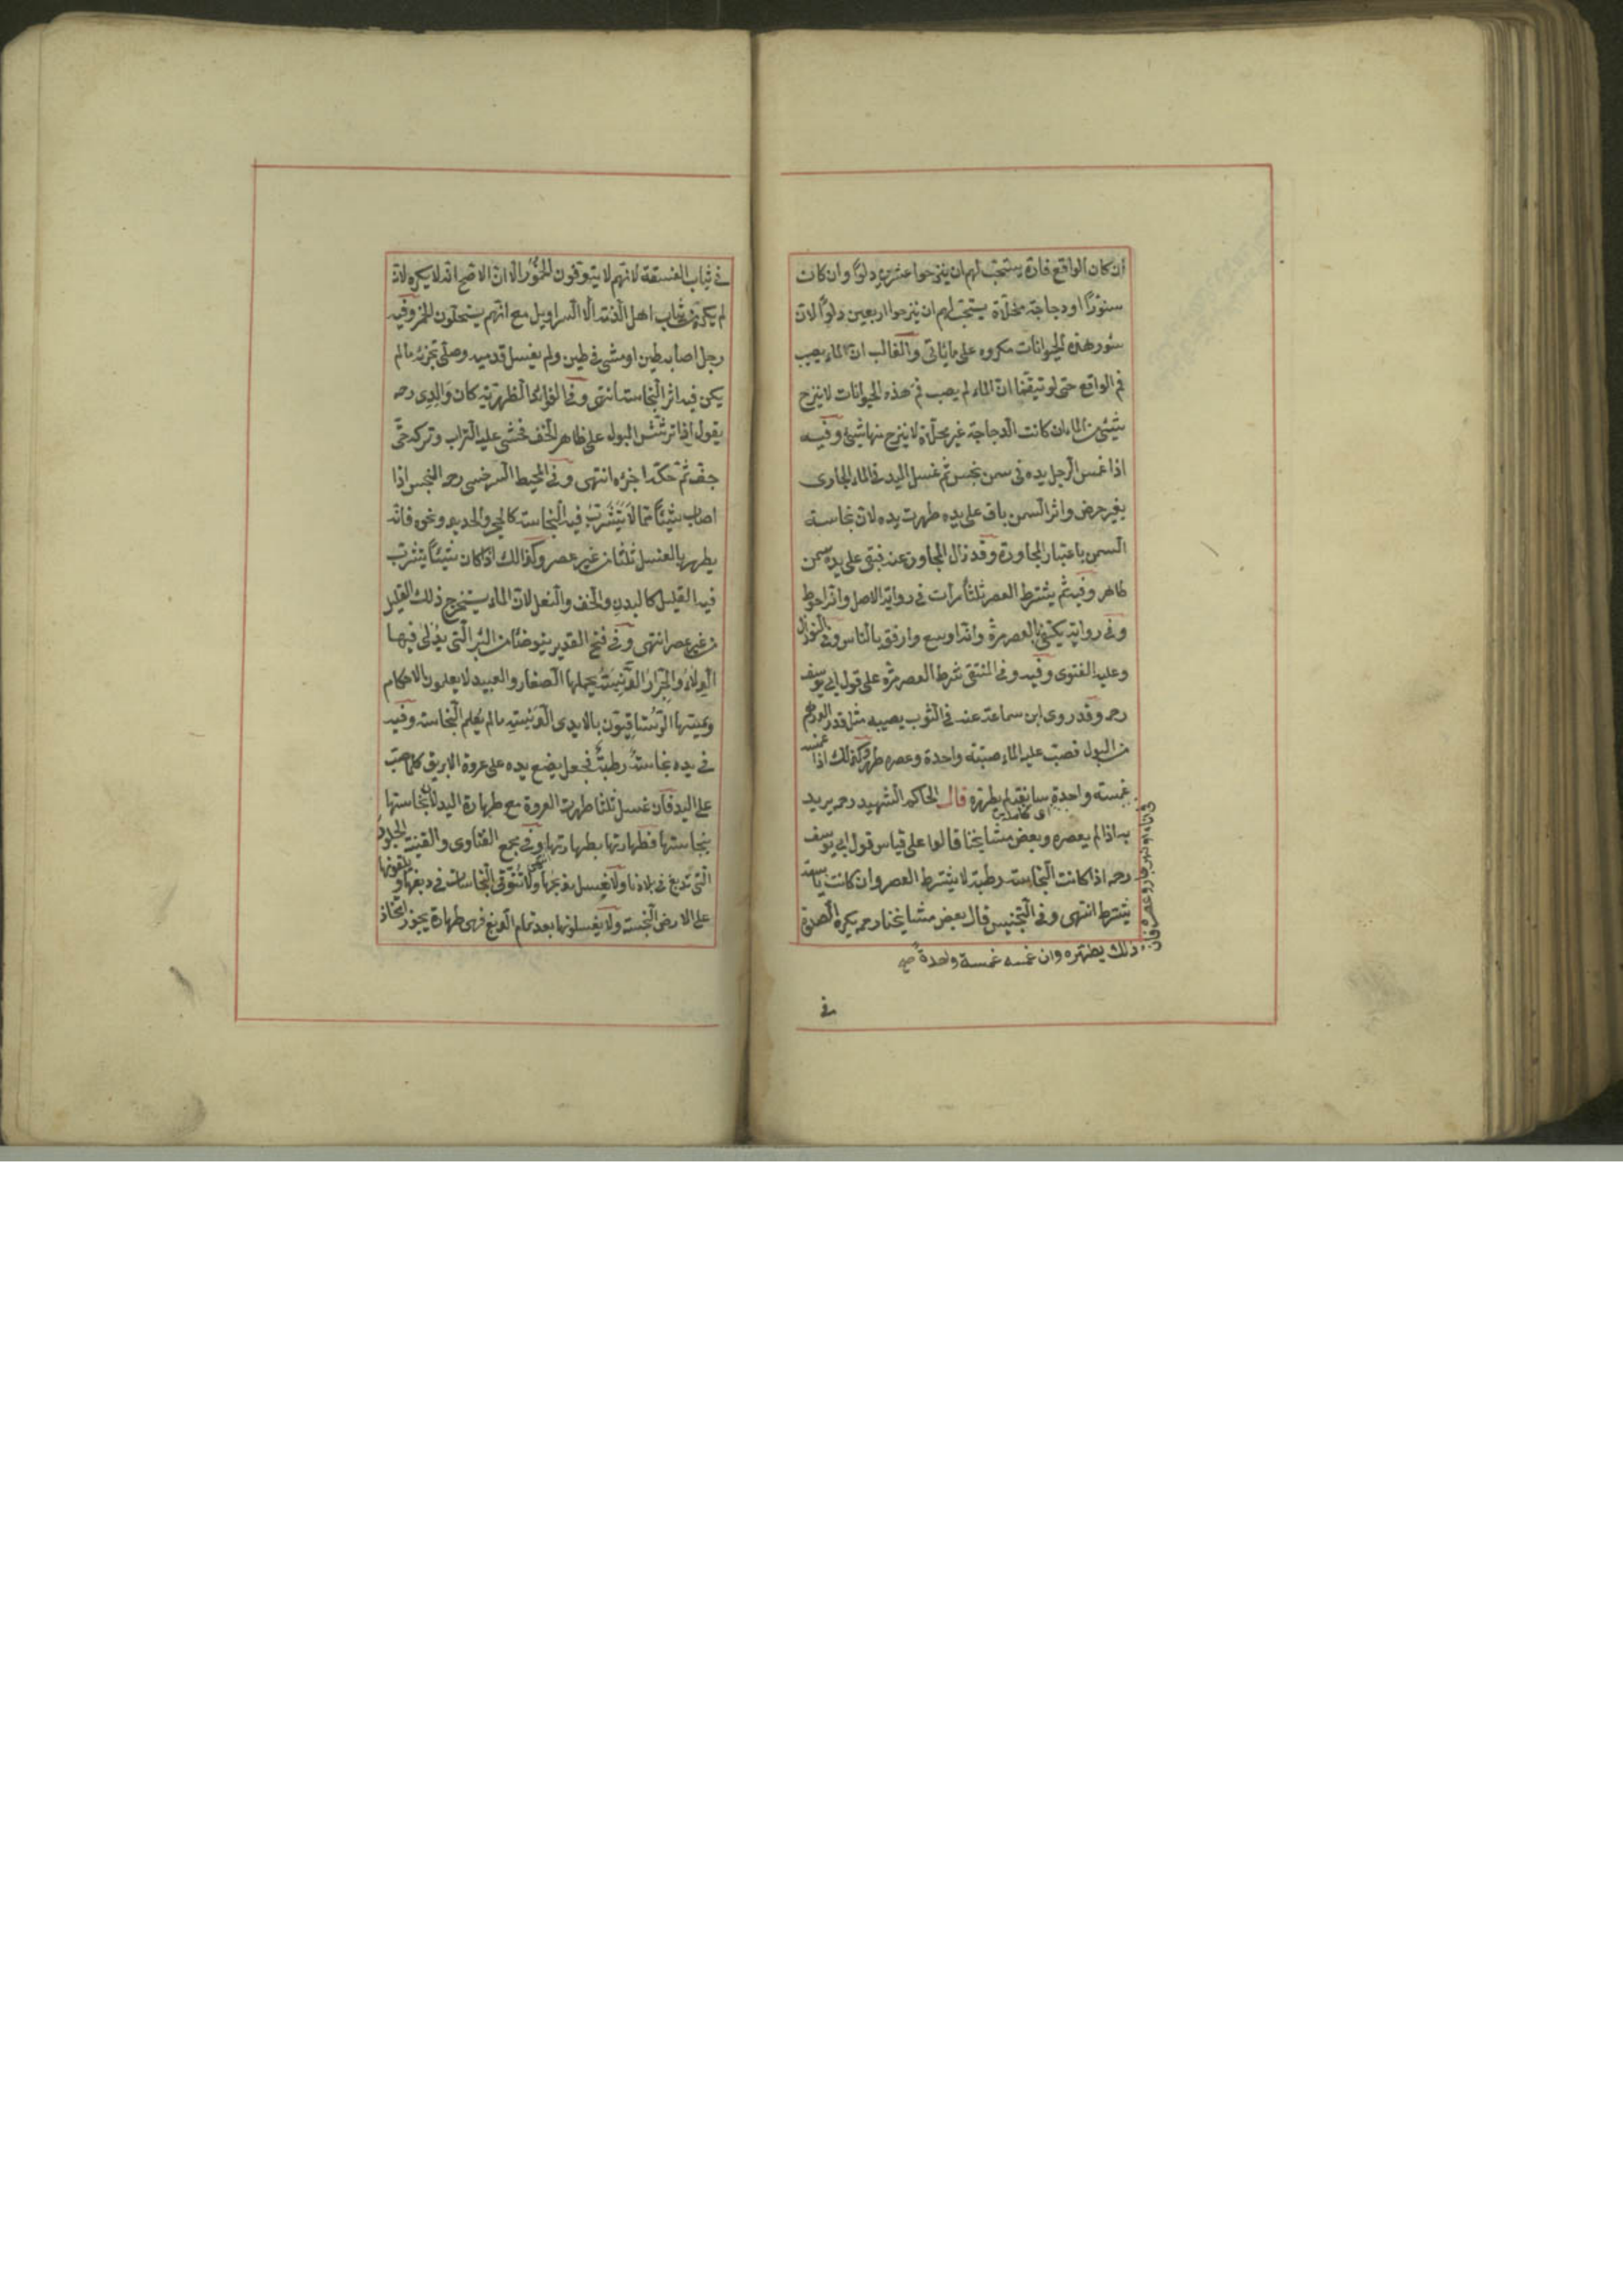 ان كان الواقع فارة يستحب لهم ان ينزحوا عشرين دلوا وان كان
سنورا او دجاجة مخلاة يستحب لهم ان ينزحوا اربعين دلوا لان
سؤر هذه الحيوانات مكروه على ما يأتى والغالب ان الماء يصيب
فم الواقع حتى لو تيقنا ان الماء لم يصب فم هذه الحيوانات لا ينزح
شئ من الماء وان كانت الدجاجة غير مخلاة لا ينزح منها شئ وفيه
اذا غمس الرجل يده فى سمن نجس ثم غسل اليد فى الماء الجارى
بغير حرض واثر السمن باق على يده طهرت يده لان نجاسة
السمن باعتبار المجاورة وقد زال المجاور عنه فبقى على يده سمن
طاهر وفيه ثم يشترط العصر ثلثا مرات فى رواية الاصل وانه احوط
وفى رواية يكتفى بالعصر مرة وانه اوسع وارفق بالناس وفى النوازل
وعليه الفتوى وفيه وفى المنتقى شرط العصر مرة على قول ابى يوسف
رحه وقد روى ابن سماعة عنه فى الثوب يصيبه مثل قدر الدرهم
من البول فصب عليه الماء صبته واحدة وعصره طهر وكذلك اذا غمسه
غمسته واحدة سابغة لم يطهره قال الحاكم الشهيد رحه يريد
به اذا لم يعصره وبعض مشايخنا قالوا على قياس قول ابى يوسف
رحه اذا كانت النجاسة رطبة لا يشترط العصر وان كانت يابسة
يشترط انتهى وفى التجنيس قال بعض مشايخنا رحه يكره الصلوة
ذلك يطهره وان غمسه غمسة واحدة صح
فى
فى ثياب الفسقة لانهم لا يتوقون الخمور الا ان الاصح انه لا يكره لانه
لم يكره من ثياب اهل الذمة الا السراويل مع انهم يستحلون الخمر وفيه
رجل اصابه طين او مشى فى طين ولم يغسل قدميه وصلى تجزئه ما لم
يكن فيه اثر النجاسة انتهى وفى الفوائد الظهيرية كان والدى رحه
يقول اذا ترشش البول على ظاهر الخف فحشى عليه التراب وتركه حتى
جف ثم حكه اجزءه انتهى وفى المحيط السرخسى رحه النجس اذا
اصاب شيئا مما لا يتشرب فيه النجاسة كالحجر والحديد ونحوه فانه
يطهر بالغسل ثلثا من غير عصر وكذالك اذا كان شيئا يتشرب
فيه القليل كالبدن والخف والنعل لان الماء يستخرج ذلك القليل
من غير عصر انتهى وفى فتح القدير يتوضأ من البئر التى يدلى فيها
الدلاء والجرار الدنسة يحملها الصغار والعبيد لا يعلمون الاحكام
ويمسها الرستاقيون بالايدى الدنسة ما لم يعلم النجاسة وفيه
فى يده نجاسة رطبة فجعل يضع يده على عروة الابريق كلما صب
على اليد فان غسل ثلثا طهرت العروة مع طهارة اليد لان نجاستها
بنجاستها فطهارتها بطهارتها وفى مجمع الفتاوى والقنية الجلود
التى تدبغ فى بلادنا ولا يغسل مذبحها ولا تتوقى النجاسات فى دبغها و يلقونها
على الارض النجسة ولا يغسلونها بعد تمام الدبغ فهى طهارة يجوز اتخاذ